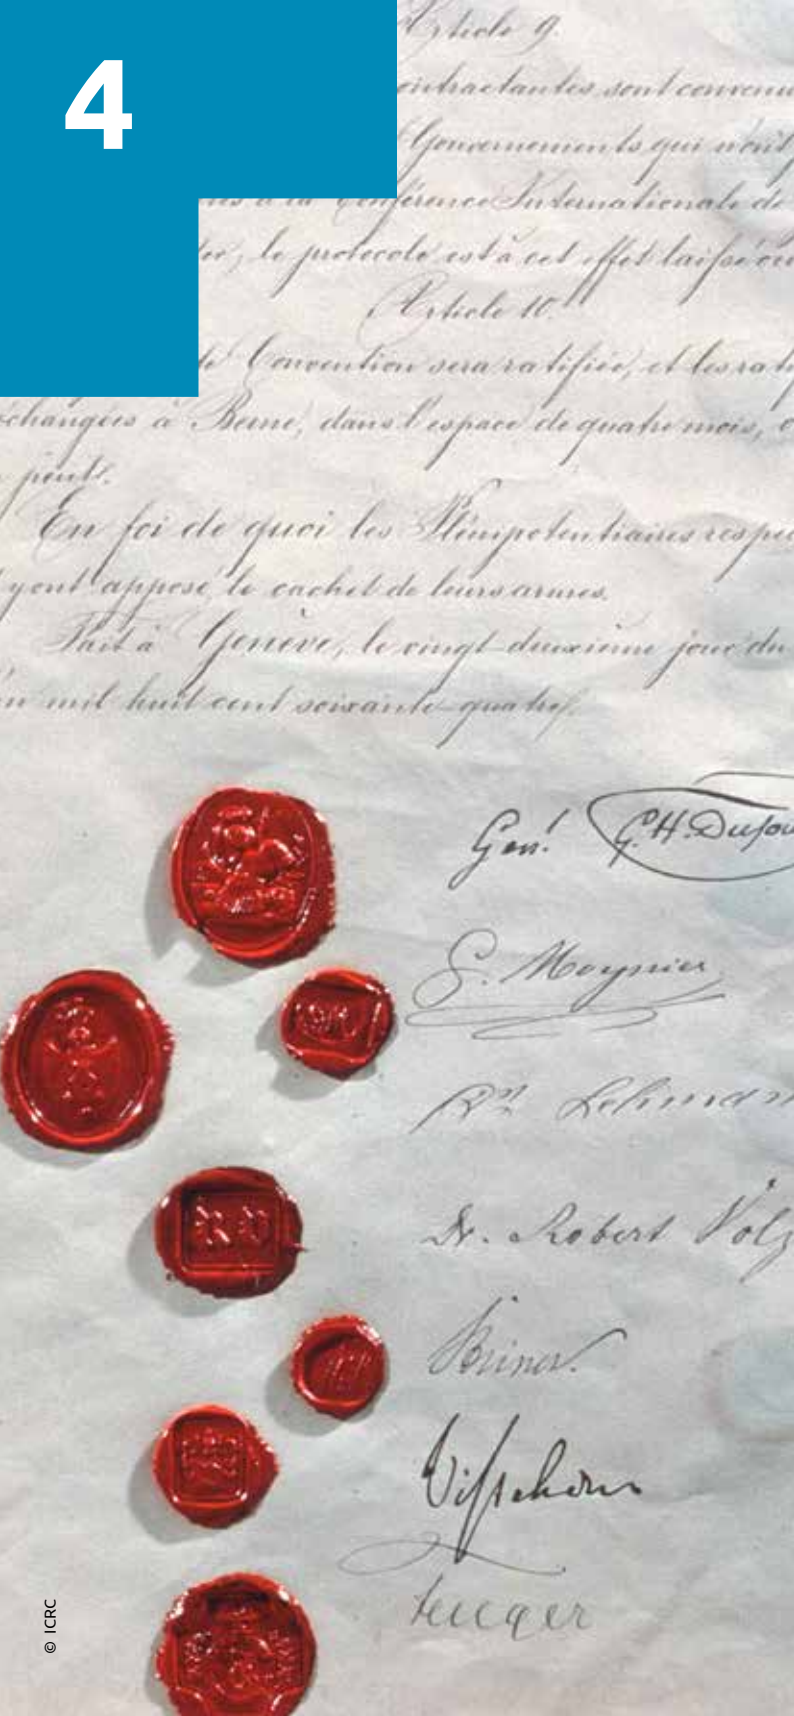 4
Article 9.
contractantes sont convenu
Gouvernements qui n'ont p
à la Conférence Internationale de
le protocole est à cet effet laissé ou
Article 10.
Convention sera ratifiée, et les rati
échangées à Berne, dans l'espace de quatre mois, o
peut.
En foi de quoi les Plénipotentiaires respec
y ont apposé le cachet de leurs armes.
Fait à Genève, le vingt-deuxième jour du
mil huit cent soixante-quatre.
Genl G. H. Dufou
G. Moynier
Dr Lehman
Dr. Robert Volz
Briner.
Visschers
Fenger
© ICRC